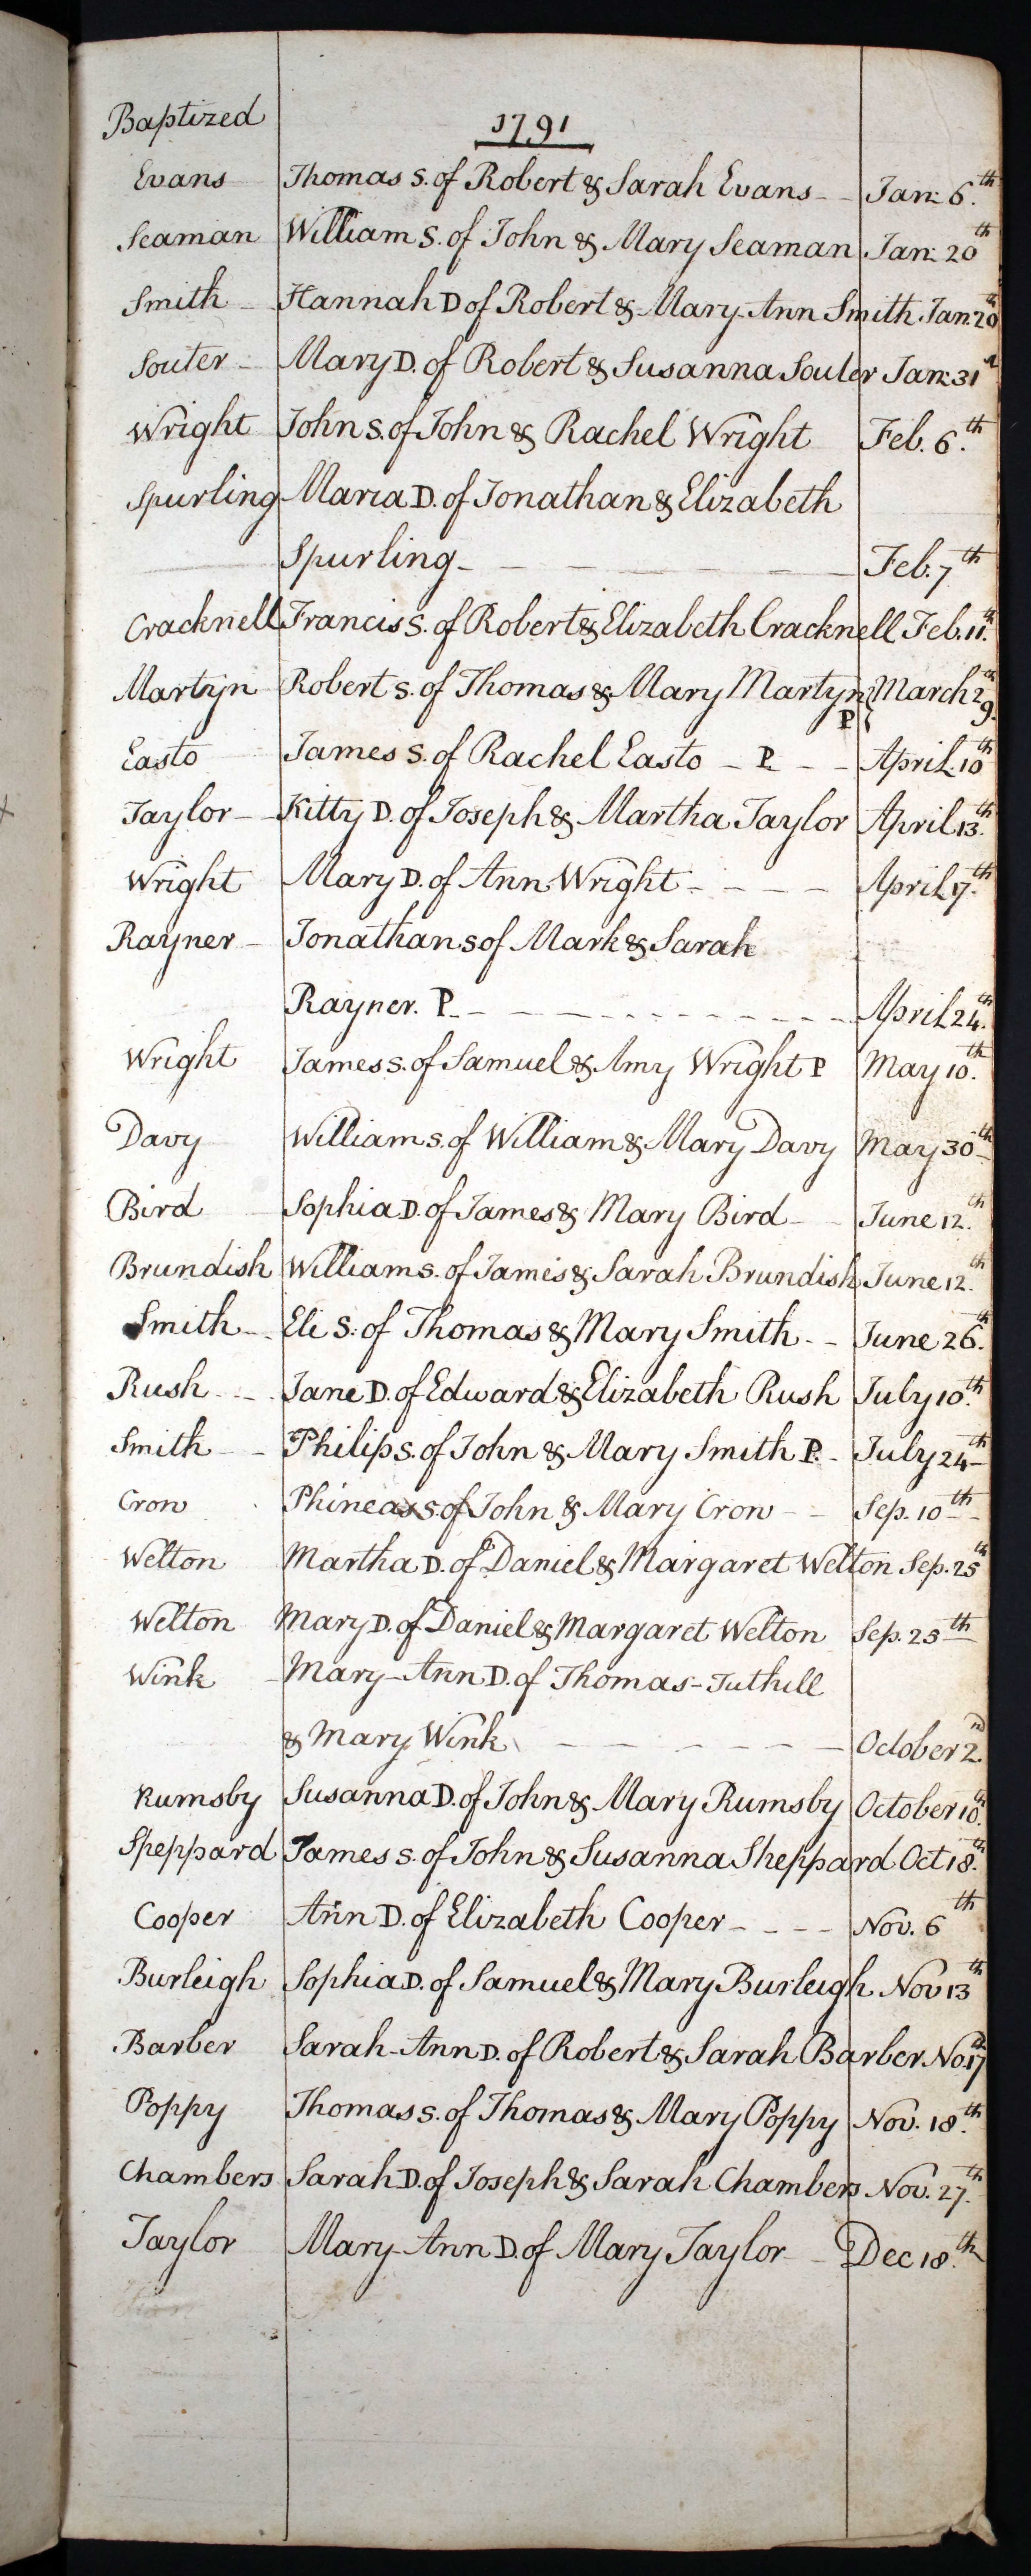 Baptized 1791
Evans Thomas S. of Robert & Sarah Evans - - Jan: 6.th
Seaman William S. of John & Mary Seaman Jan: 20th
Smith - Hannah D of Robert & Mary-Ann Smith Jan: 20th
Souter - Mary D. of Robert & Susanna Souter Jan: 31st
Wright John S. of John & Rachel Wright Feb. 6.th
Spurling Maria D. of Jonathan & Elizabeth
Spurling - - - - - Feb. 7th
Cracknell Francis S. of Robert & Elizabeth Cracknell Feb. 11.th
Martyn Robert S. of Thomas & Mary Martyn P March 29.th
Easto James S. of Rachel Easto - P - - April 10th
Taylor - - Kitty D. of Joseph & Martha Taylor April 13.th
Wright Mary D. of Ann Wright - - - - April 17.th
Rayner - Jonathan s of Mark & Sarah
Rayner. P - - - - - - - - - April 24.th
Wright James s. of Samuel & Amy Wright P May 10.th
Davy William s. of William & Mary Davy May 30th
Bird Sophia D. of James & Mary Bird - - June 12.th
Brundish William s. of James & Sarah Brundish June 12.th
Smith - - Eli S: of Thomas & Mary Smith - - June 26.th
Rush - - - Jane D. of Edward & Elizabeth Rush July 10.th
Smith - - Philip s. of John & Mary Smith P. - July 24th
Crow Phineas s. of John & Mary Crow - - Sep. 10th
Welton Martha D. of Daniel & Margaret Welton Sep. 25th
Welton Mary D. of Daniel & Margaret Welton Sep. 25th
Wink - Mary-Ann D. of Thomas-Tuthill
& Mary Wink - - - - - - October 2.nd
Rumsby Susanna D. of John & Mary Rumsby October 10.th
Speppard James s. of John & Susanna Sheppard Oct 18.th
Cooper Ann D. of Elizabeth Cooper - - - - Nov. 6th
Burleigh Sophia D. of Samuel & Mary Burleigh Nov 13th
Barber Sarah-Ann D. of Robert & Sarah Barber No. 17th
Poppy Thomas s. of Thomas & Mary Poppy Nov. 18.th
Chambers Sarah D. of Joseph & Sarah Chambers Nov. 27.th
Taylor Mary-Ann D. of Mary Taylor - Dec 18.th